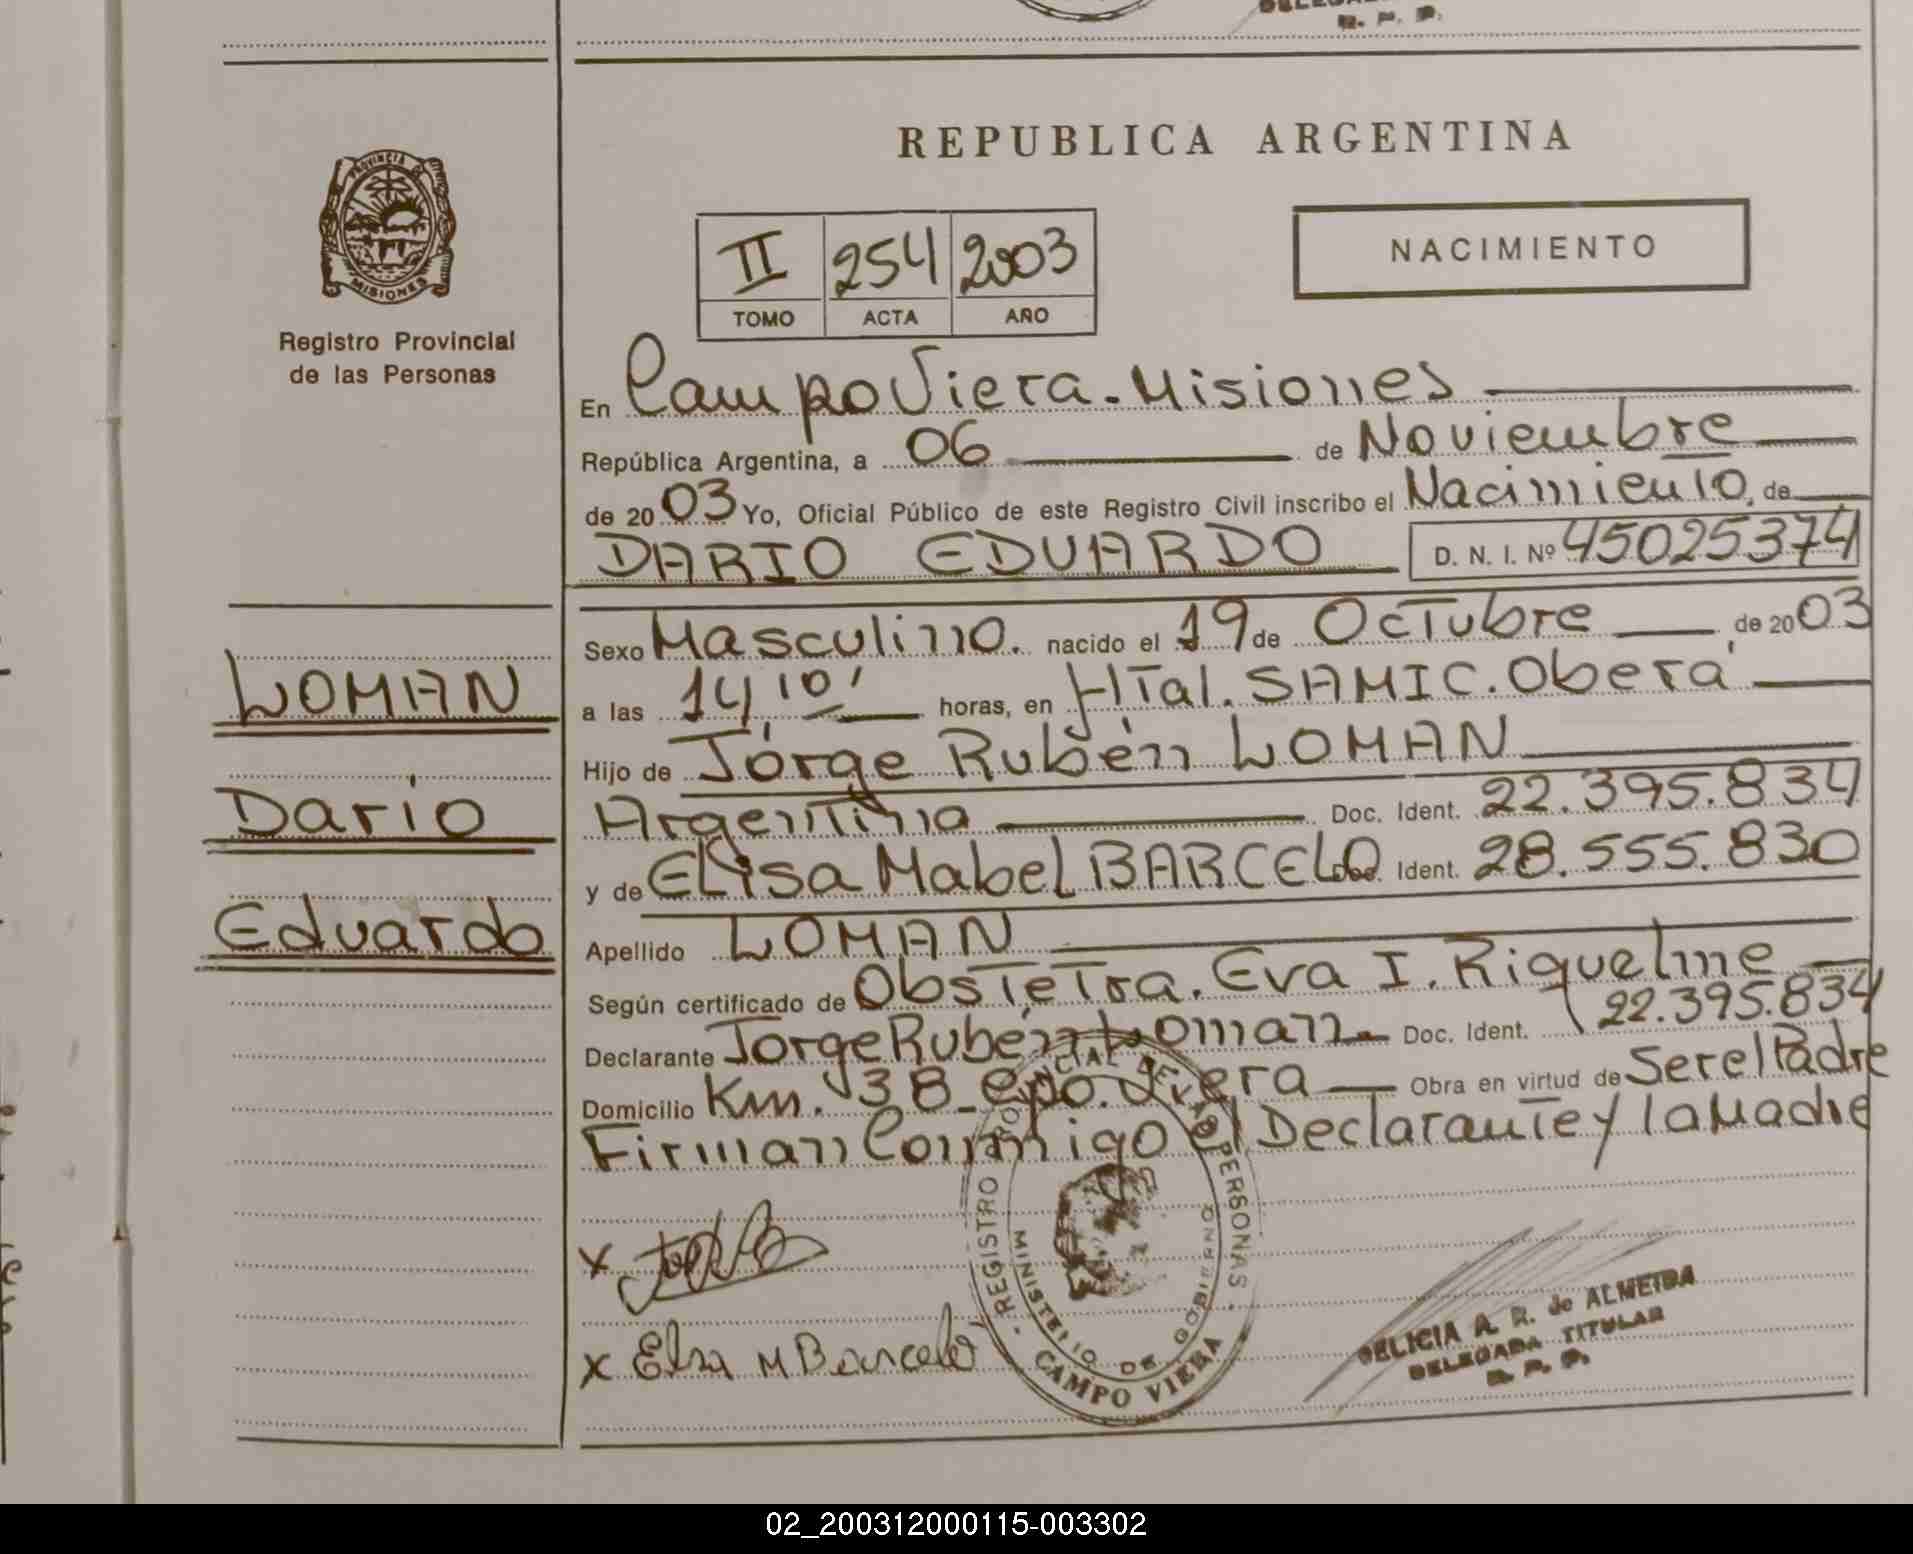 DELEGADA
R. P. P.
REPUBLICA ARGENTINA
PROVINCIA DE
MISIONES
Registro Provincial
de las Personas
II 254 2003
TOMO ACTA AÑO
NACIMIENTO
En Campo Viera - Misiones
República Argentina, a 06 de Noviembre
de 2003 Yo, Oficial Público de este Registro Civil inscribo el Nacimiento, de
DARIO EDUARDO D. N. I. Nº 45025374
Sexo Masculino. nacido el 19 de Octubre de 2003
a las 14,10' horas, en HTal. SAMIC. Oberá
Hijo de Jorge Rubén LOMAN
Argentina Doc. Ident. 22.395.834
y de Elisa Mabel BARCELO Doc. Ident. 28.555.830
Apellido LOMAN
Según certificado de Obstetra. Eva I. Riquelme
Declarante Jorge Rubén Loman Doc. Ident. 22.395.834
Domicilio Km. 38 - Cpo. Viera Obra en virtud de Ser el Padre
Firman Conmigo el Declarante y la Madre
LOMAN
Dario
Eduardo
X
X Elsa M Barceló
REGISTRO PROVINCIAL DE LAS PERSONAS
MINISTERIO DE GOBIERNO
CAMPO VIERA
DELICIA A. R. de ALMEIDA
DELEGADA TITULAR
R. P. P.
02_200312000115-003302